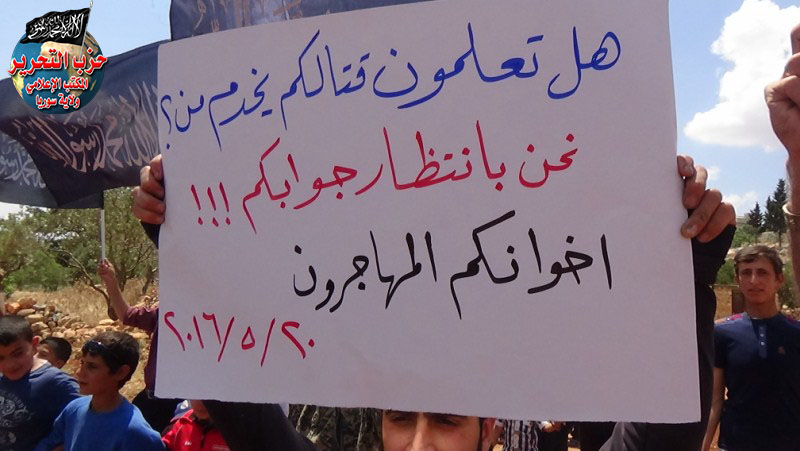 حزب التحرير
المكتب الإعلامي
ولاية سوريا
هل تعلمون قتالكم يخدم من؟
نحن بانتظار جوابكم !!!
اخوانكم المهاجرون
٢٠١٦/٥/٢٠